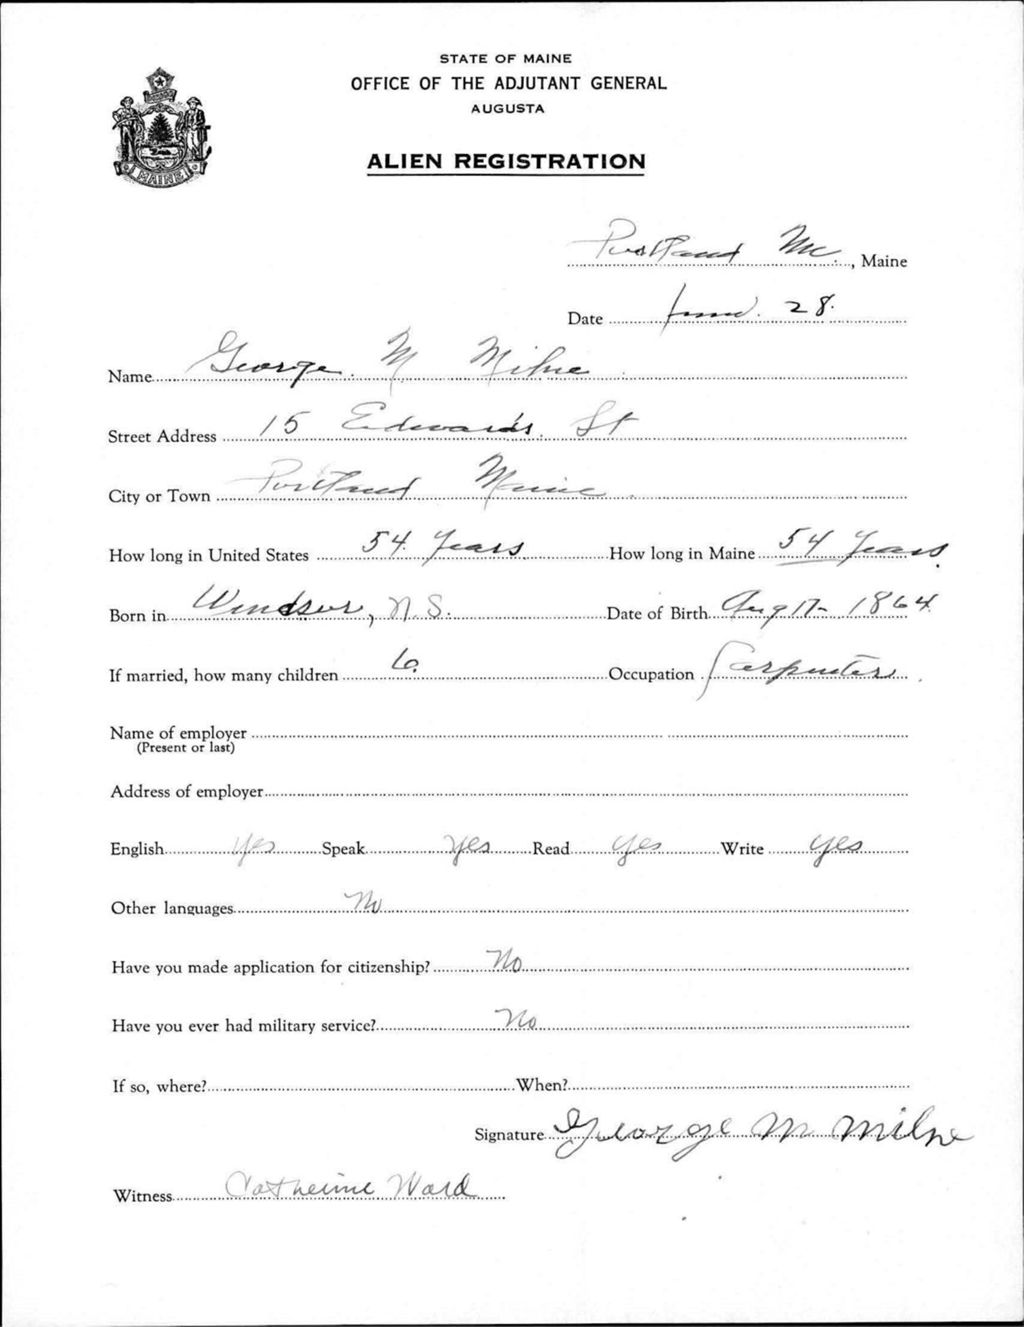 STATE OF MAINE
OFFICE OF THE ADJUTANT GENERAL
AUGUSTA
MAINE
ALIEN REGISTRATION
Portland Me., Maine
Date June. 28.
Name George M Milne
Street Address 15 Edwards St
City or Town Portland Maine
How long in United States 54 Years How long in Maine 54 Years
Born in Windsor, N.S. Date of Birth Aug 17- 1864
If married, how many children 6. Occupation Carpenter
Name of employer
(Present or last)
Address of employer
English Yes Speak Yes Read Yes Write Yes
Other languages No
Have you made application for citizenship? No
Have you ever had military service? No
If so, where? When?
Signature George M Milne
Witness Catherine Ward